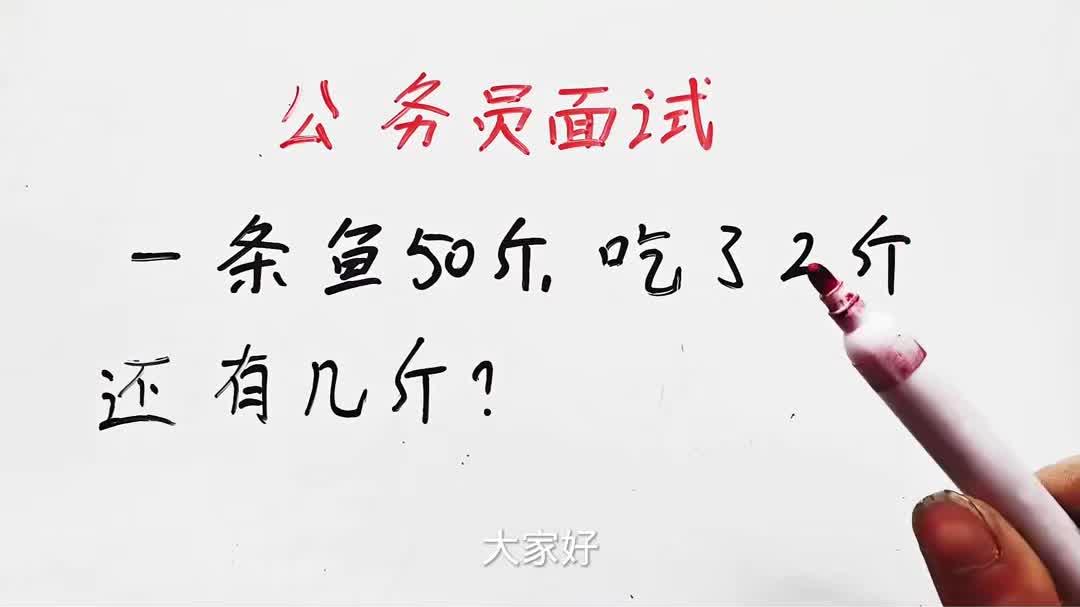 公务员面试
一条鱼50斤,吃了2斤
还有几斤?
大家好